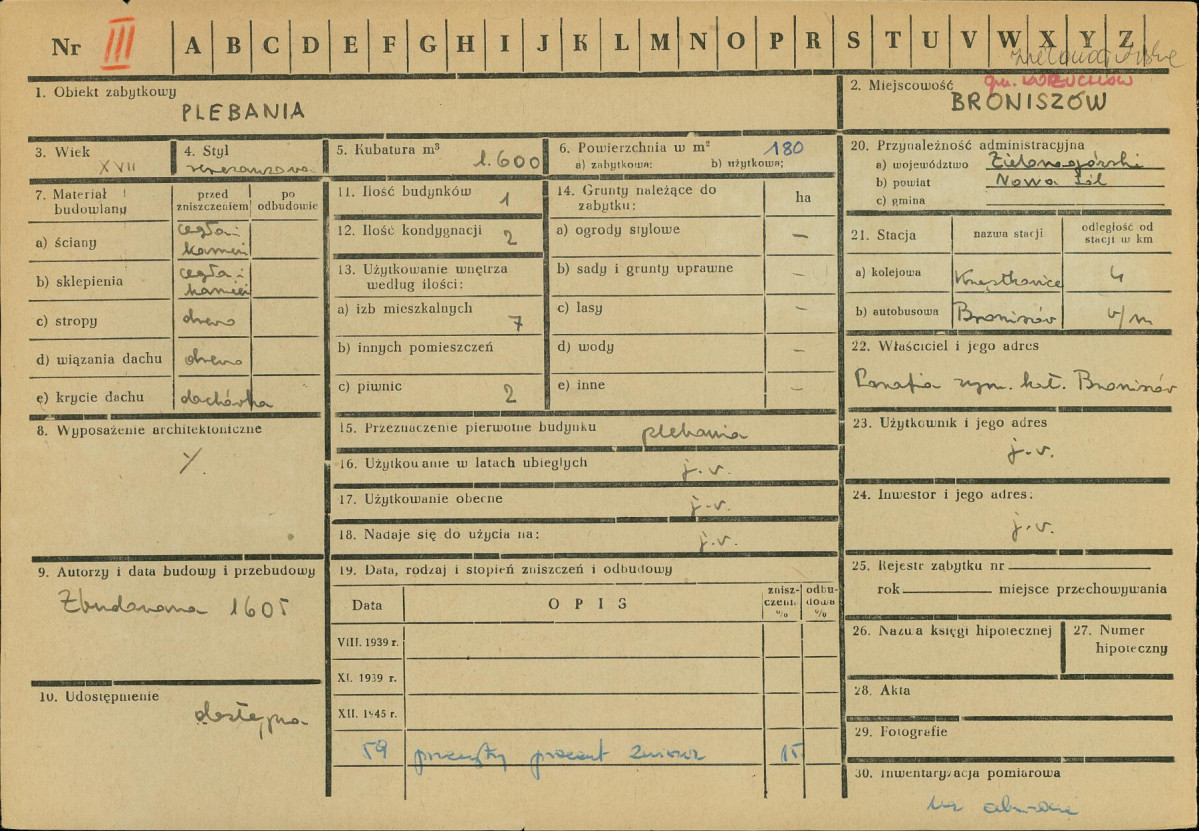 Nr III A B C D E F G H I J K L M N O P R S T U V W X Y Z
1. Obiekt zabytkowy
PLEBANIA
2. Miejscowość
BRONISZÓW
3. Wiek
XVII
4. Styl
5. Kubatura m³
1.600
6. Powierzchnia w m² 180
a) zabytkowa: b) użytkowa:
7. Materiał budowlany
przed zniszczeniem
po odbudowie
a) ściany cegła i kamień
b) sklepienia cegła i kamień
c) stropy drewno
d) wiązania dachu drewno
e) krycie dachu dachówka
8. Wyposażenie architektoniczne
9. Autorzy i data budowy i przebudowy
Zbudowana 1605
10. Udostępnienie
dostępna
11. Ilość budynków 1
12. Ilość kondygnacji 2
13. Użytkowanie wnętrza według ilości:
a) izb mieszkalnych 7
b) innych pomieszczeń
c) piwnic 2
14. Grunty należące do zabytku: ha
a) ogrody stylowe —
b) sady i grunty uprawne —
c) lasy —
d) wody —
e) inne —
15. Przeznaczenie pierwotne budynku plebania
16. Użytkowanie w latach ubiegłych j.w.
17. Użytkowanie obecne j.w.
18. Nadaje się do użycia na: j.w.
19. Data, rodzaj i stopień zniszczeń i odbudowy
Data OPIS zniszczeń % odbudowa %
VIII. 1939 r.
XI. 1939 r.
XII. 1945 r.
59 procent 15
20. Przynależność administracyjna
a) województwo Zielonogórski
b) powiat Nowa Sól
c) gmina
21. Stacja nazwa stacji odległość od stacji w km
a) kolejowa 4
b) autobusowa Broniszów w/m
22. Właściciel i jego adres
Parafia rzym. kat. Broniszów
23. Użytkownik i jego adres
j.w.
24. Inwestor i jego adres:
j.w.
25. Rejestr zabytku nr
rok miejsce przechowywania
26. Nazwa księgi hipotecznej
27. Numer hipoteczny
28. Akta
29. Fotografie
30. Inwentaryzacja pomiarowa